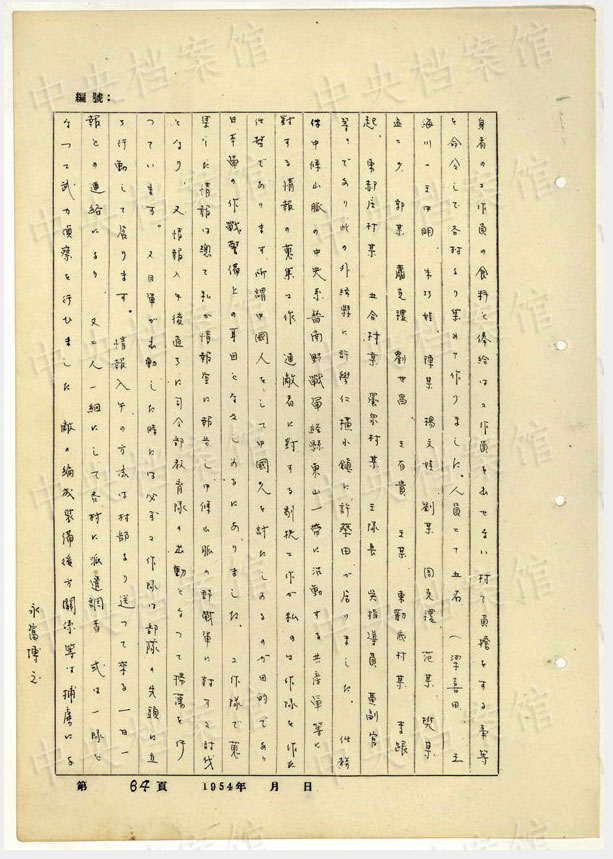 編號：
身者の工作員の食料と俸給は工作員を出せない村で負擔をする事等
を命令して各村より集めて作りました。人員は五名（梁喜田 王
海川 王中明 朱巧娃 陳某 楊文娃 劉某 周克環 范某 樊某
孟二少 郭某 蕭克環 劉世昌 王有貴 王某 東勤底村某 李銀
起 東部庄村某 五合村某 晏家村某 王隊長 吳指導員 董副官
等々であり此の外絳縣に許學仁 橫水鎮に許榮田が居りました。任務
は中條山脈の中央系晉南野戰軍絳縣東山一帶に活動する共産軍等に
對する情報の蒐集工作 通敵者に對する剔抉工作が私の工作隊を作た
任務であります 所謂中國人をして中國人を討たしめるのが目的であり
日本軍の作戰警備上の耳目となさしめるにありました。工作隊で蒐
集した情報は總て私が情報室に報告し中條山脈の野戰軍に對する討伐
となり 又情報入手後直ちに司令部教育隊の出動となつて掃蕩を行
つています。又日軍が出動した時には必ず工作隊は部隊の先頭に立
ち行動して居ります。情報入手の方法は村部より送つて來る一日一
報との連絡により 又二人一組にして各村に派遣調査 或は一隊に
なつて武力偵察を行ひました 敵の編成裝備後方關係等は捕虜によ
永富博之
第 64 頁 1954年 月 日
中央档案馆